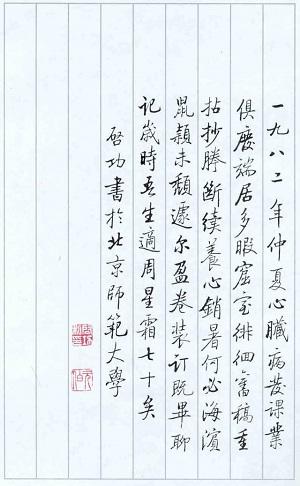 一九八二年仲夏心臟病發課業
俱廢端居多暇窟室徘徊舊稿重
拈抄謄斷續養心銷暑何必海濱
鼠穎未頹遽尔盈卷裝訂既畢聊
记歲時吾生適周星霜七十矣
啓功書於北京師範大學